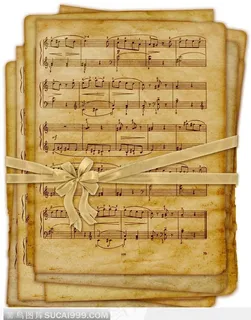 菜鸟图库SUCAI999.COM